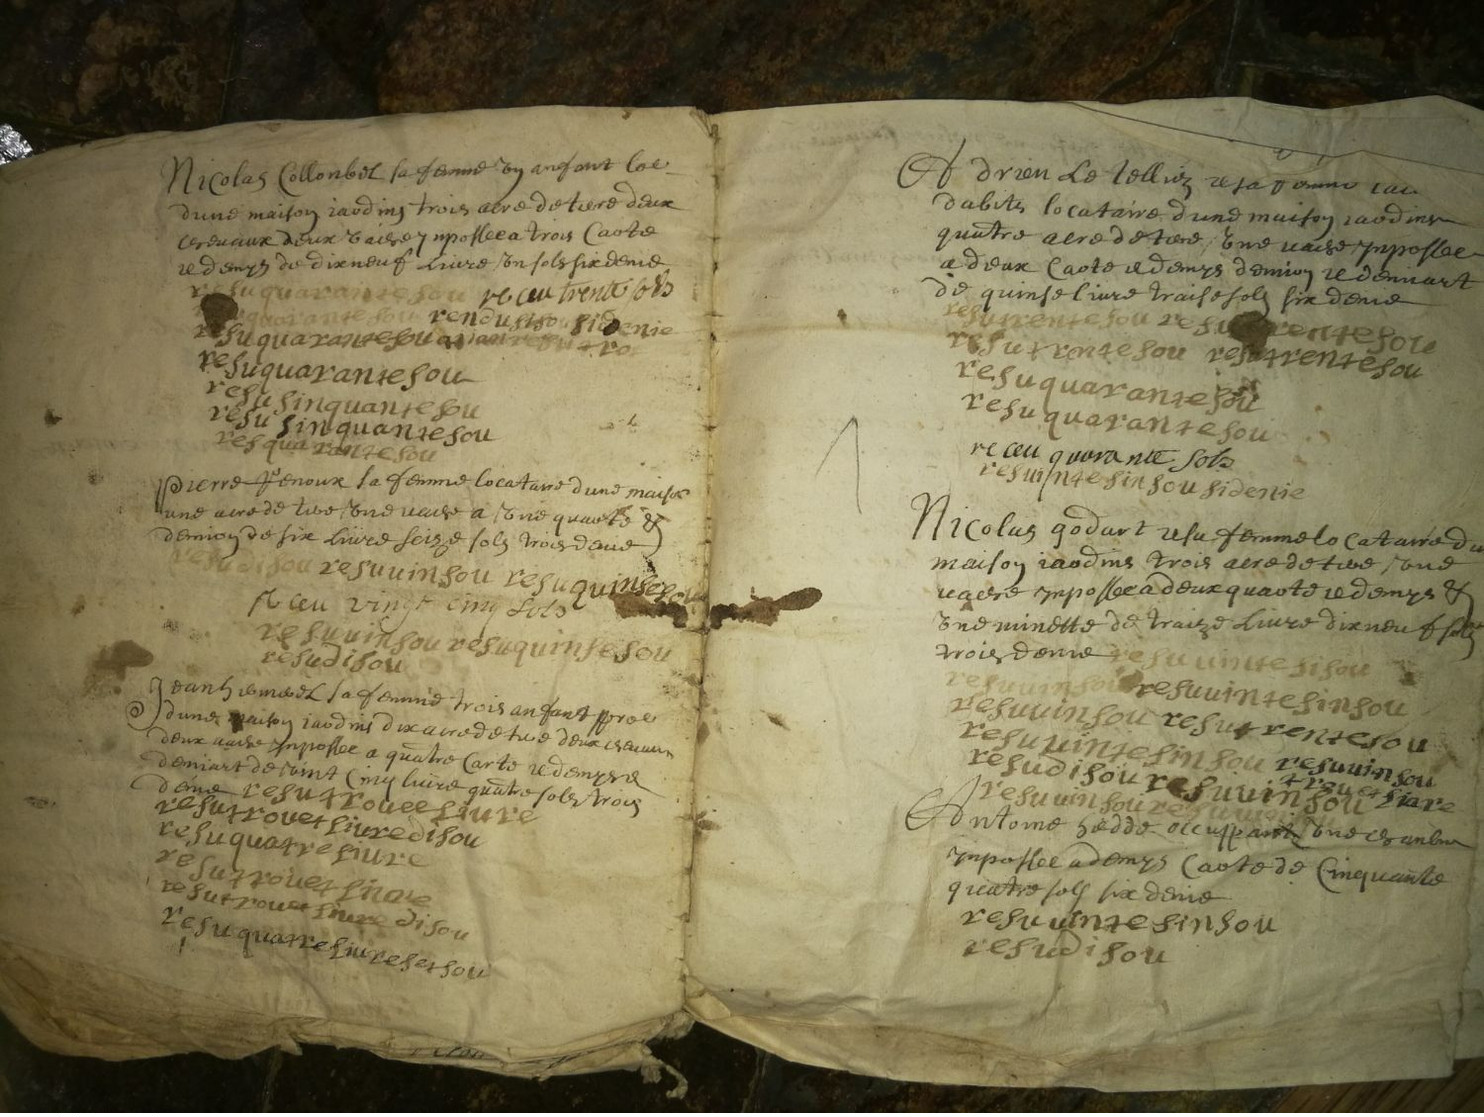 Nicolas Collonbel sa femme un anfant loc
dune maison iardins trois acre de terre deux
cevaux deux vaise ynposslee a trois Carte
le demys de dix neuf Livre un sols six denie
resu quarante sou receu trente sols
quarante sou rendu sisou sidenie
resu quarante sou
resu quarante sou
resu sinquante sou
resu sinquante sou
res quarante sou
pierre fenoux sa femme locataire dune maison
une acre de terre une vaise a une quarte &
demion de six Livre seize sols trois denie
resu disou resu vin sou resu quinse sou
Receu vingt cinq sols
resu vin sou resu quinse sou
resu disou
Jean sa femme trois anfant pproe
dune maison iardins dix acre de terre deux
deux vaise ynposslee a quatre Carte le demys &
demiart de vint Cinq livre quatre sols trois
denie resu trouee Livre
resu trouet Livre disou
resu quatre Livre
resu trouet Livre
resu trouet Livre disou
resu quatre Livre set sou
Adrien Le tellier et sa femme
dabits locataire dune maison iardins
quatre acre de terre une vaise ynposslee
a deux Carte le demys demion le demiart
de quinse livre traise sols six denie
resu trente sou resu trente sou
resu trente sou resu trente sou
resu quarante sou
resu quarante sou
receu quarante sols
resu vinte sin sou sidenie
Nicolas godart et sa femme locataire du
maison iardins trois acre de terre une
vaise ynposslee a deux quarte le demys &
une minette de traize Livre dix neuf sols
trois denie resu vinte sisou
resu vin sou resu vinte sin sou
resu vin sou resu trente sou
resu vinte sin sou resu vin sou
resu disou resu vin sou
resu vin sou
Antoine hedde occuppant une
ynposslee a demys Carte de Cinquante
quatre sols six denie
resu vinte sin sou
resu disou